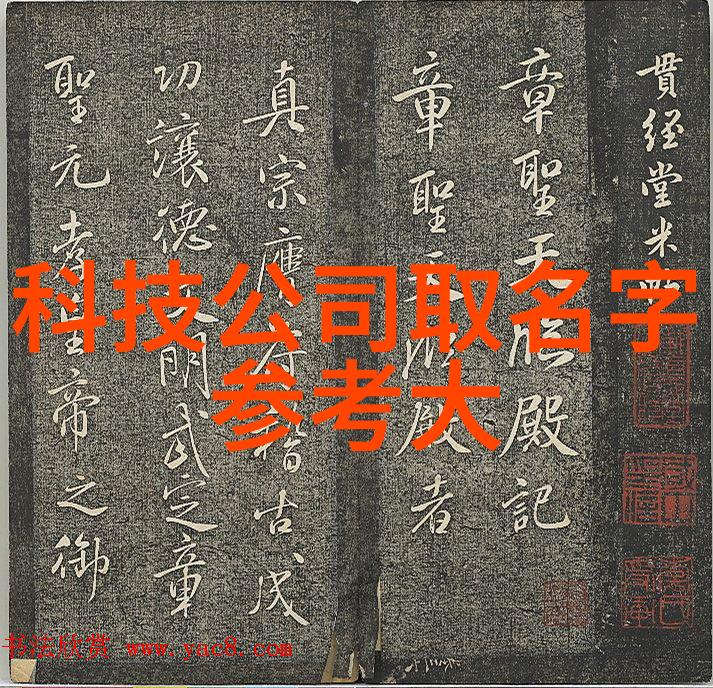 科技公司取名字
参考大
貫经堂米
章聖天临殿記
章聖天临殿者
真宗膺符稽古成
功讓德文明武定章
聖元孝皇帝之御
书法欣赏 www.yac8.com